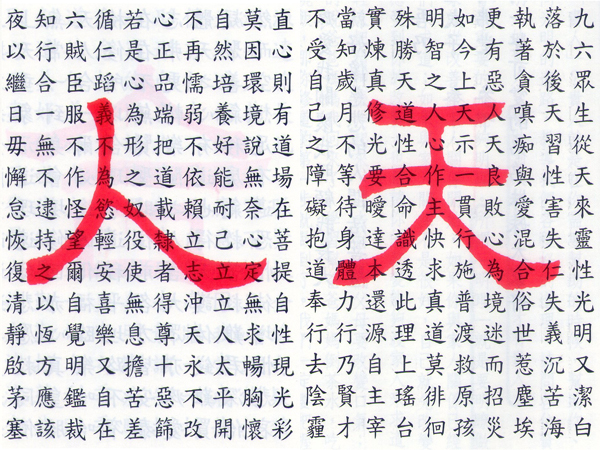 天
九六眾生從天來靈性光明又潔白
落於後天習性害失仁失義沉苦海
執著貪嗔痴與愛混合俗世惹塵埃
更有惡人天良敗心為境迷而招災
如今上天示一貫行施普渡救原孩
明智之人心作主快求真道莫徘徊
殊勝天道性合命識透此理上瑤台
實煉真修光要曖達本還源自主宰
當知歲月不等待身體力行乃賢才
不受自己之障礙抱道奉行去陰霾
人
直心則有道場在菩提自性現光彩
莫因環境說無奈心定無求暢胸懷
自然培養好能耐己立立人太平開
不再懦弱不依賴立志沖天永不改
心正品端把道載隸者得尊十惡篩
若是心為形之奴役使無息擔苦差
循仁蹈義不為慾輕安喜樂又自在
六賊臣服不作怪望爾自覺明鑑裁
知行合一無不逮持之以恆方應該
夜以繼日毋懈怠恢復清靜啟茅塞